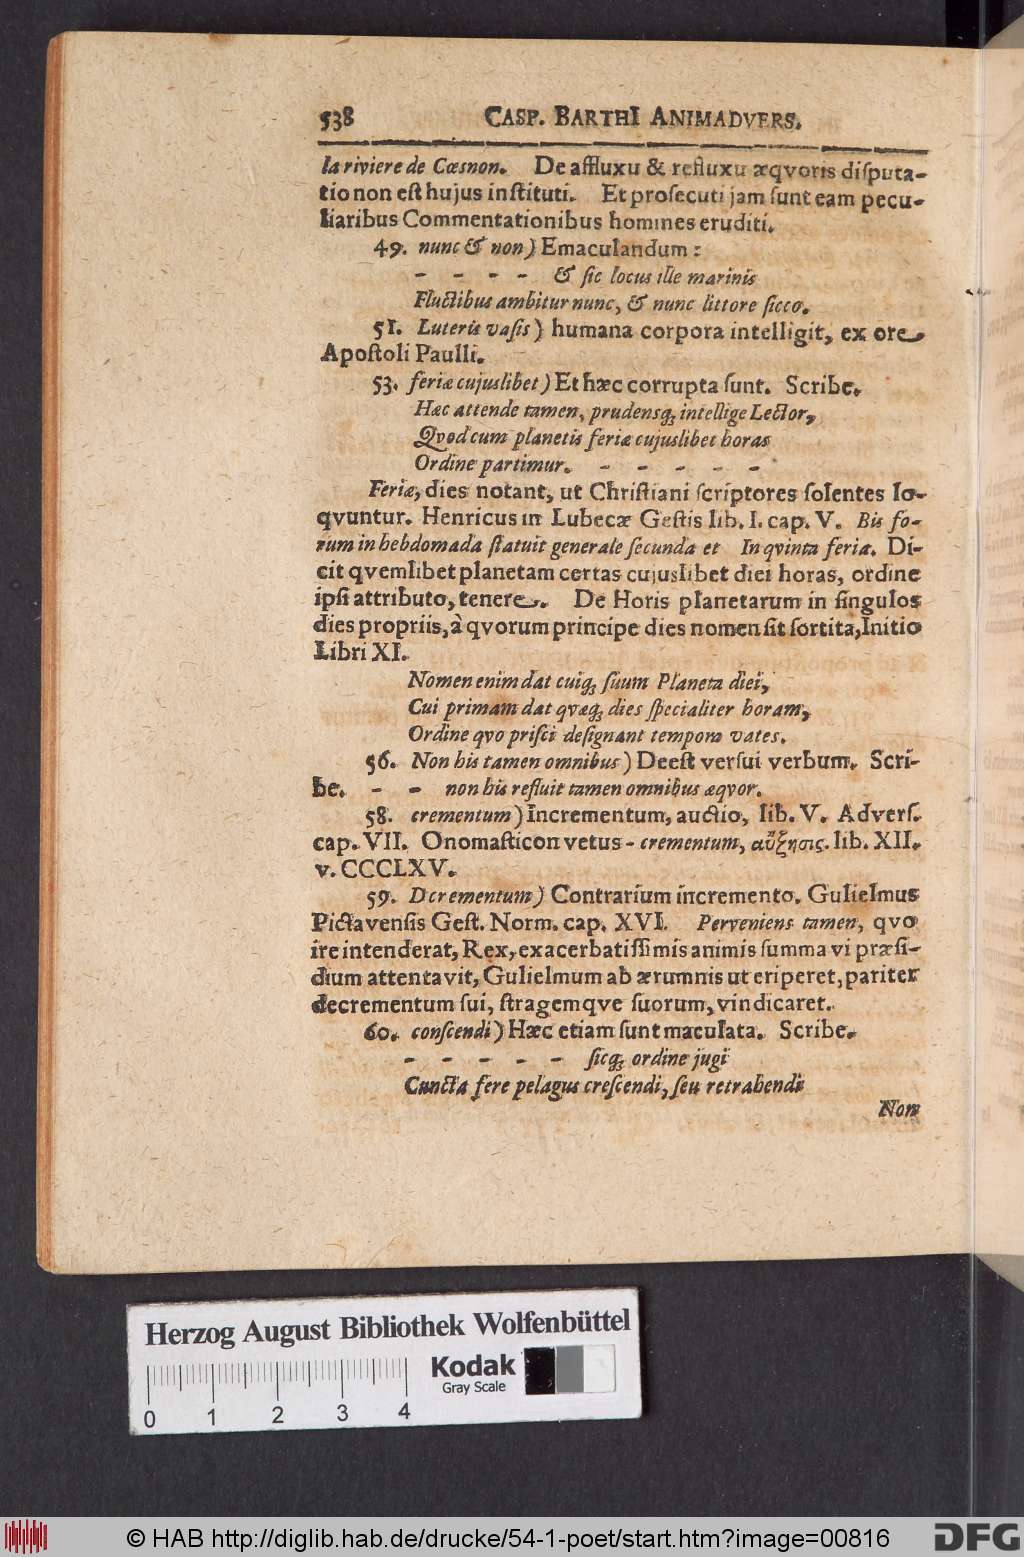 538 CASP. BARTHI ANIMADVERS.
la riviere de Cœsnon. De affluxu & refluxu æqvoris disputa-
tio non est hujus instituti. Et prosecuti jam sunt eam pecu-
liaribus Commentationibus homines eruditi.
49. nunc & non) Emaculandum:
- - - - & sic locus ille marinis
Fluctibus ambitur nunc, & nunc littore sicco.
51. Luteris vasis) humana corpora intelligit, ex ore
Apostoli Paulli.
53. feriæ cujuslibet) Et hæc corrupta sunt. Scribe.
Hæc attende tamen, prudensq; intellige Lector,
Qvod cum planetis feriæ cujuslibet horas
Ordine partimur. - - - - -
Feriæ, dies notant, ut Christiani scriptores solentes lo-
qvuntur. Henricus in Lubecæ Gestis lib. I. cap. V. Bis fo-
rum in hebdomada statuit generale secunda et In qvinta feria. Di-
cit qvemlibet planetam certas cujuslibet diei horas, ordine
ipsi attributo, tenere. De Horis planetarum in singulos
dies propriis, à qvorum principe dies nomen sit sortita, Initio
Libri XI.
Nomen enim dat cuiq; suum Planeta diei,
Cui primam dat qvæq; dies specialiter horam,
Ordine qvo prisci designant tempora vates.
56. Non his tamen omnibus) Deest versui verbum. Scri-
be. - - non his refluit tamen omnibus æqvor.
58. crementum) Incrementum, auctio, lib. V. Advers.
cap. VII. Onomasticon vetus - crementum, αὔξησις. lib. XII.
v. CCCLXV.
59. Dcrementum) Contrarium incremento. Gulielmus
Pictavensis Gest. Norm. cap. XVI. Perveniens tamen, qvo
ire intenderat, Rex, exacerbatissimis animis summa vi præsi-
dium attentavit, Gulielmum ab ærumnis ut eriperet, pariter
decrementum sui, stragemqve suorum, vindicaret.
60. conscendi) Hæc etiam sunt maculata. Scribe.
- - - - - sicq; ordine jugi
Cuncta fere pelagus crescendi, seu retrahendi
Non
Herzog August Bibliothek Wolfenbüttel
Kodak
Gray Scale
0 1 2 3 4
© HAB http://diglib.hab.de/drucke/54-1-poet/start.htm?image=00816
DFG